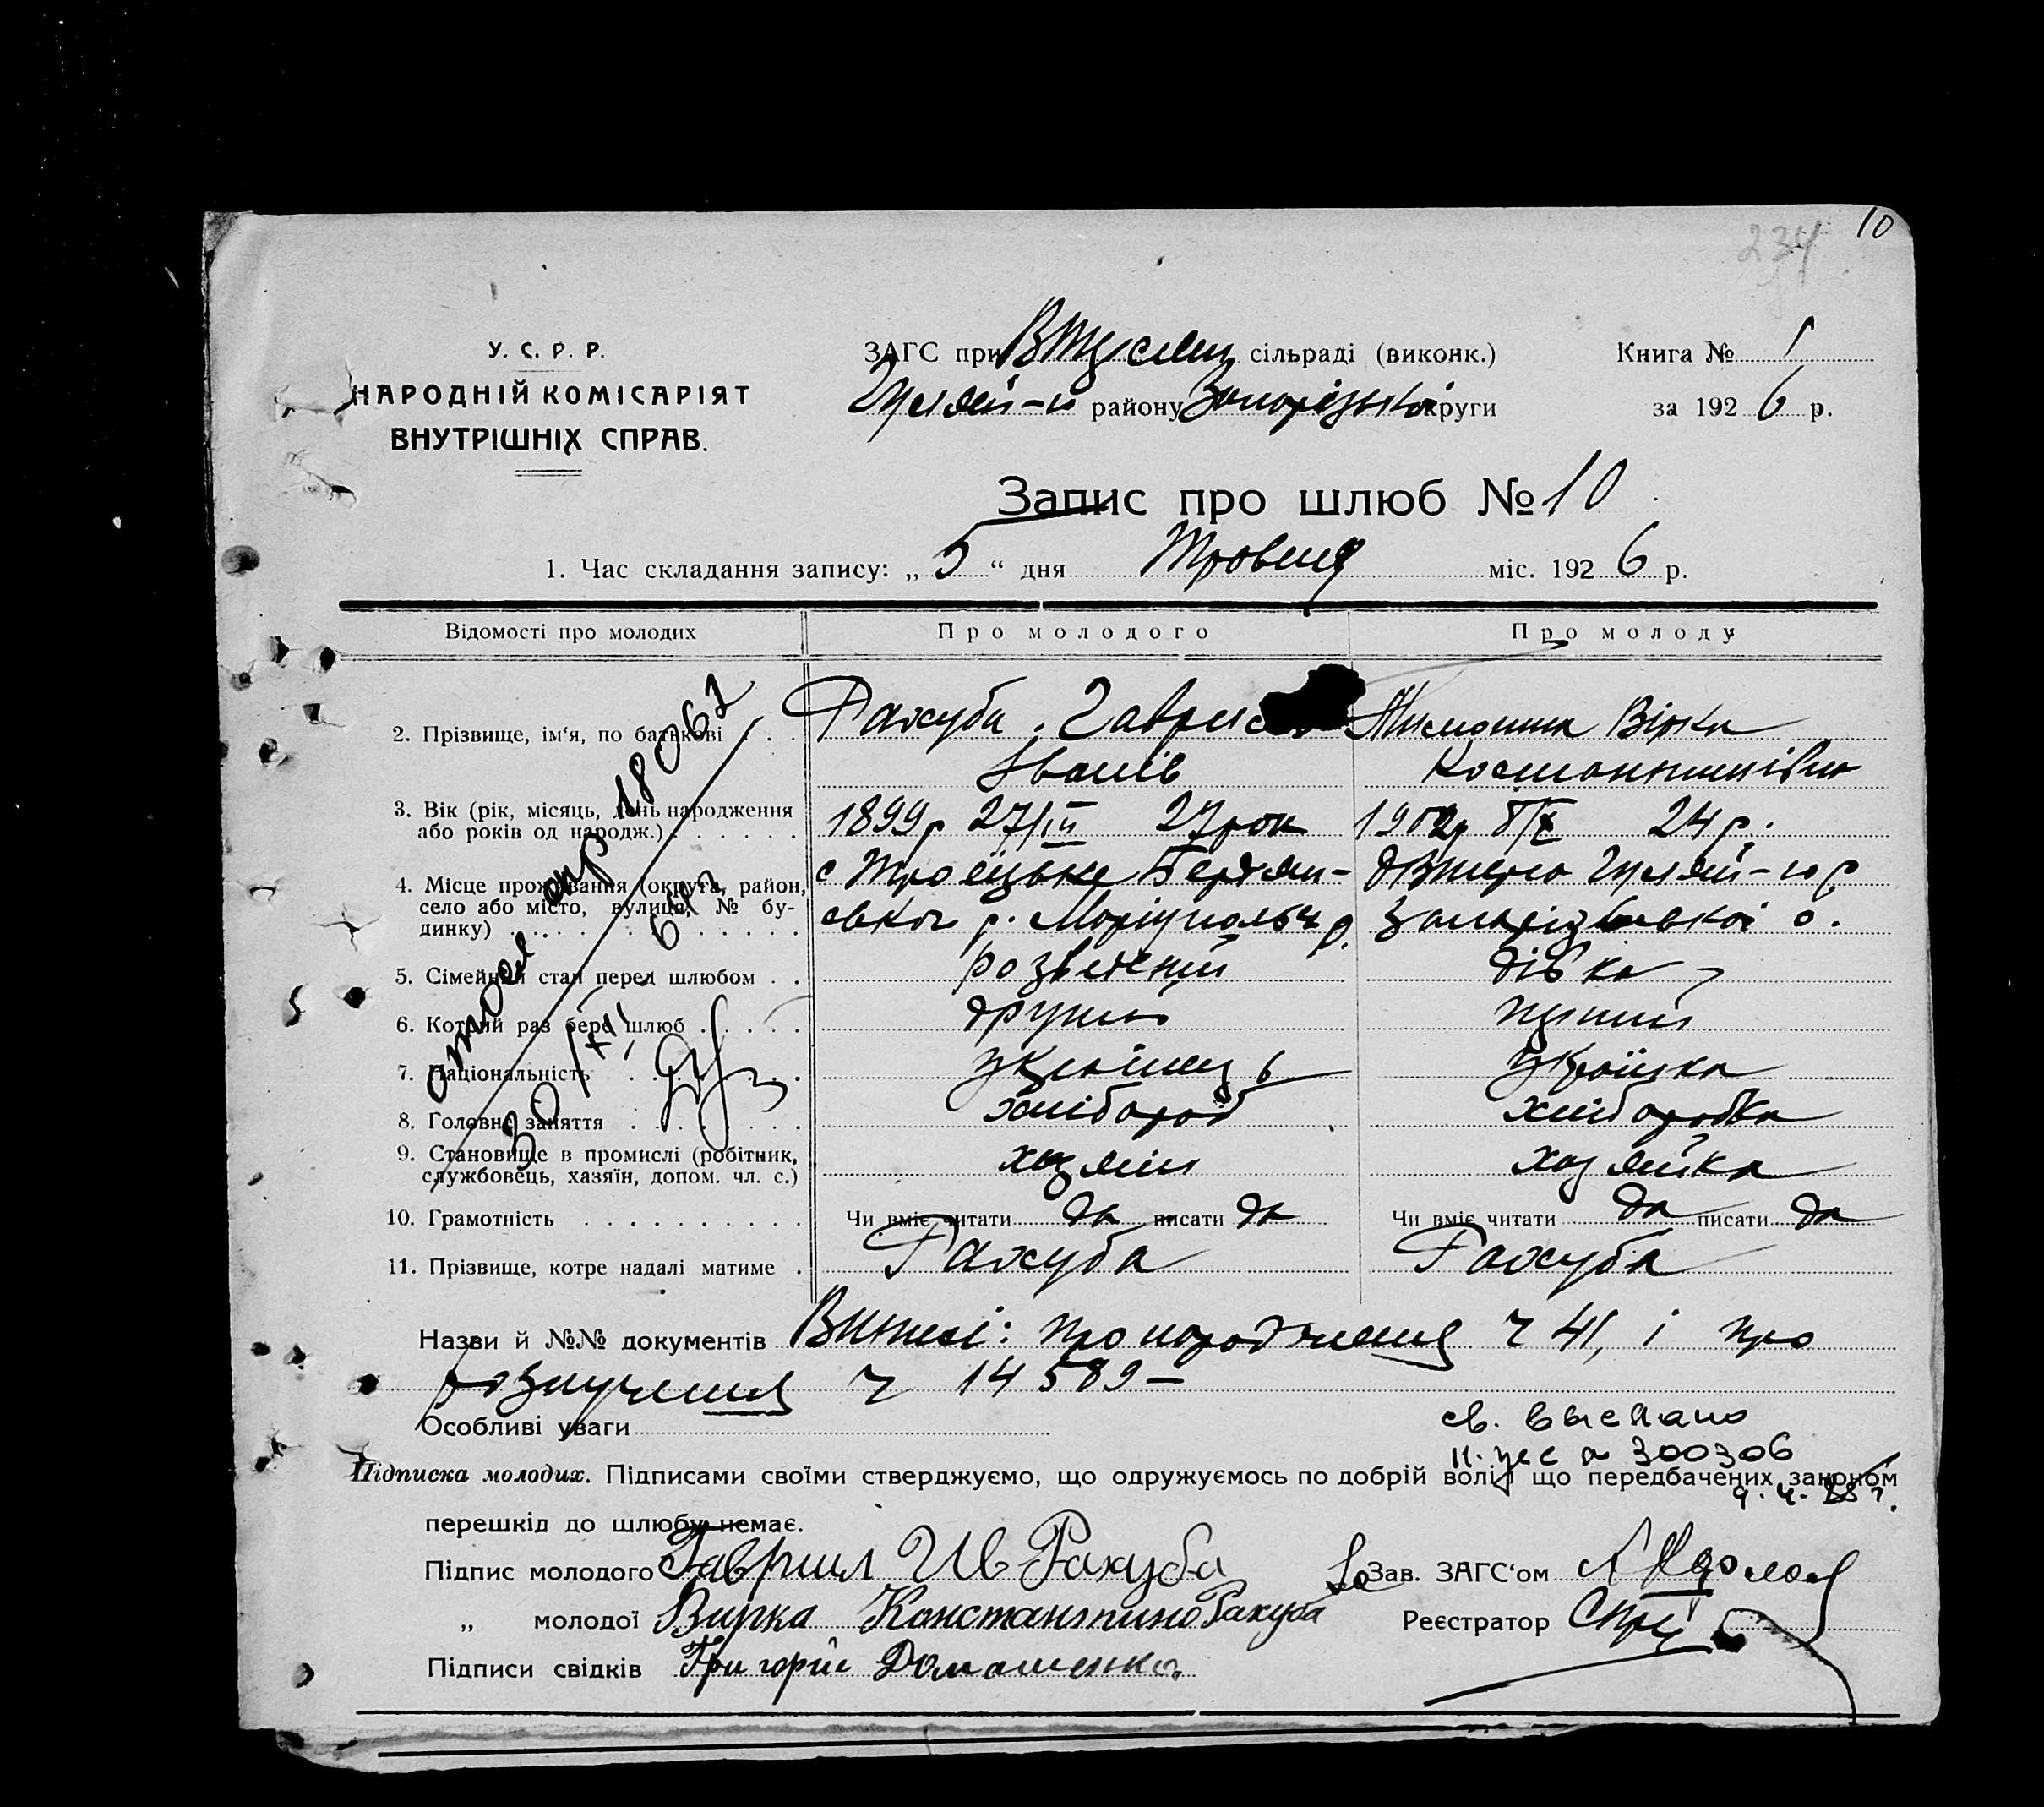 10
234
У. С. Р. Р.
НАРОДНІЙ КОМІСАРІЯТ
ВНУТРІШНІХ СПРАВ.
ЗАГС при сільраді (виконк.)
Книга № 1
Гуляй-п району Запорізької округи
за 192 6 р.
Запис про шлюб № 10
1. Час складання запису: „ 5 “ дня Травня міс. 192 6 р.
Відомості про молодих Про молодого Про молоду
2. Прізвище, ім‘я, по батькові . . . Рахуба Гаврило Вірка
Іванів Костантинівна
3. Вік (рік, місяць, день народження
або років од народж.) . . . . . . 1899р 27/III 27 рок 1902р 8/X 24 р.
4. Місце проживання (округа, район, с Троїцьке Бердян- Гуляй-п р
село або місто, вулиця, № бу- ської р. Маріупольч о. Запорізької о.
динку) . . . . . . . . . . . . . .
5. Сімейний стан перед шлюбом . . розведений дівка
6. Котрий раз бере шлюб . . . . . другий перший
7. Національність . . . . . . українець українка
8. Головне заняття . . . . . . . хлібороб хліборобка
9. Становище в промислі (робітник,
службовець, хазяїн, допом. чл. с.) хазяїн хазяйка
10. Грамотність . . . . . . . . . . Чи вміє читати да писати да Чи вміє читати да писати да
11. Прізвище, котре надалі матиме . Рахуба Рахуба
180062
30/XII
Назви й №№ документів Витягі: про народження ч 41, і про
розлучення ч 14589 —
Особливі уваги
св. выслано
300306
Підписка молодих. Підписами своїми стверджуємо, що одружуємось по добрій волі й що передбачених законом
перешкід до шлюбу немає.
Підпис молодого Гавриил Ив Рахуба
Зав. ЗАГС‘ом
„ молодої Вирка Константино Рахуба
Реєстратор
Підписи свідків Григорій Домашенко